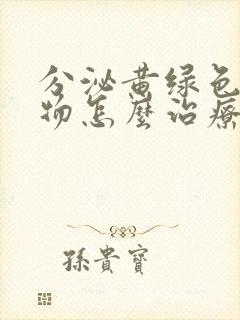 分泌黄绿色
物怎麼治療
孫貴寶